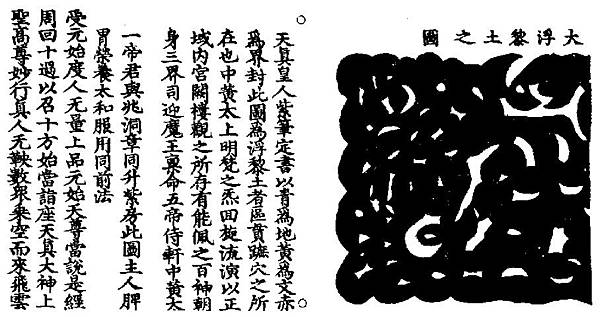 大浮黎土之圖
天真皇人紫筆定書以青爲地黃爲文赤
爲界封此圖爲浮黎土者區貫蹠穴之所
在也中黃太上明梵之炁回旋流演以正
域内宮闕樓觀之所存有能佩之百神朝
身三界司迎魔王稟命五帝侍軒中黃太
一帝君與兆洞章同升紫房此圖主人脾
胃榮養太和服用同前法
受元始度人无量上品元始天尊當說是經
周回十過以召十方始當詣座天真大神上
聖高尊妙行真人无鞅數眾乗空而來飛雲